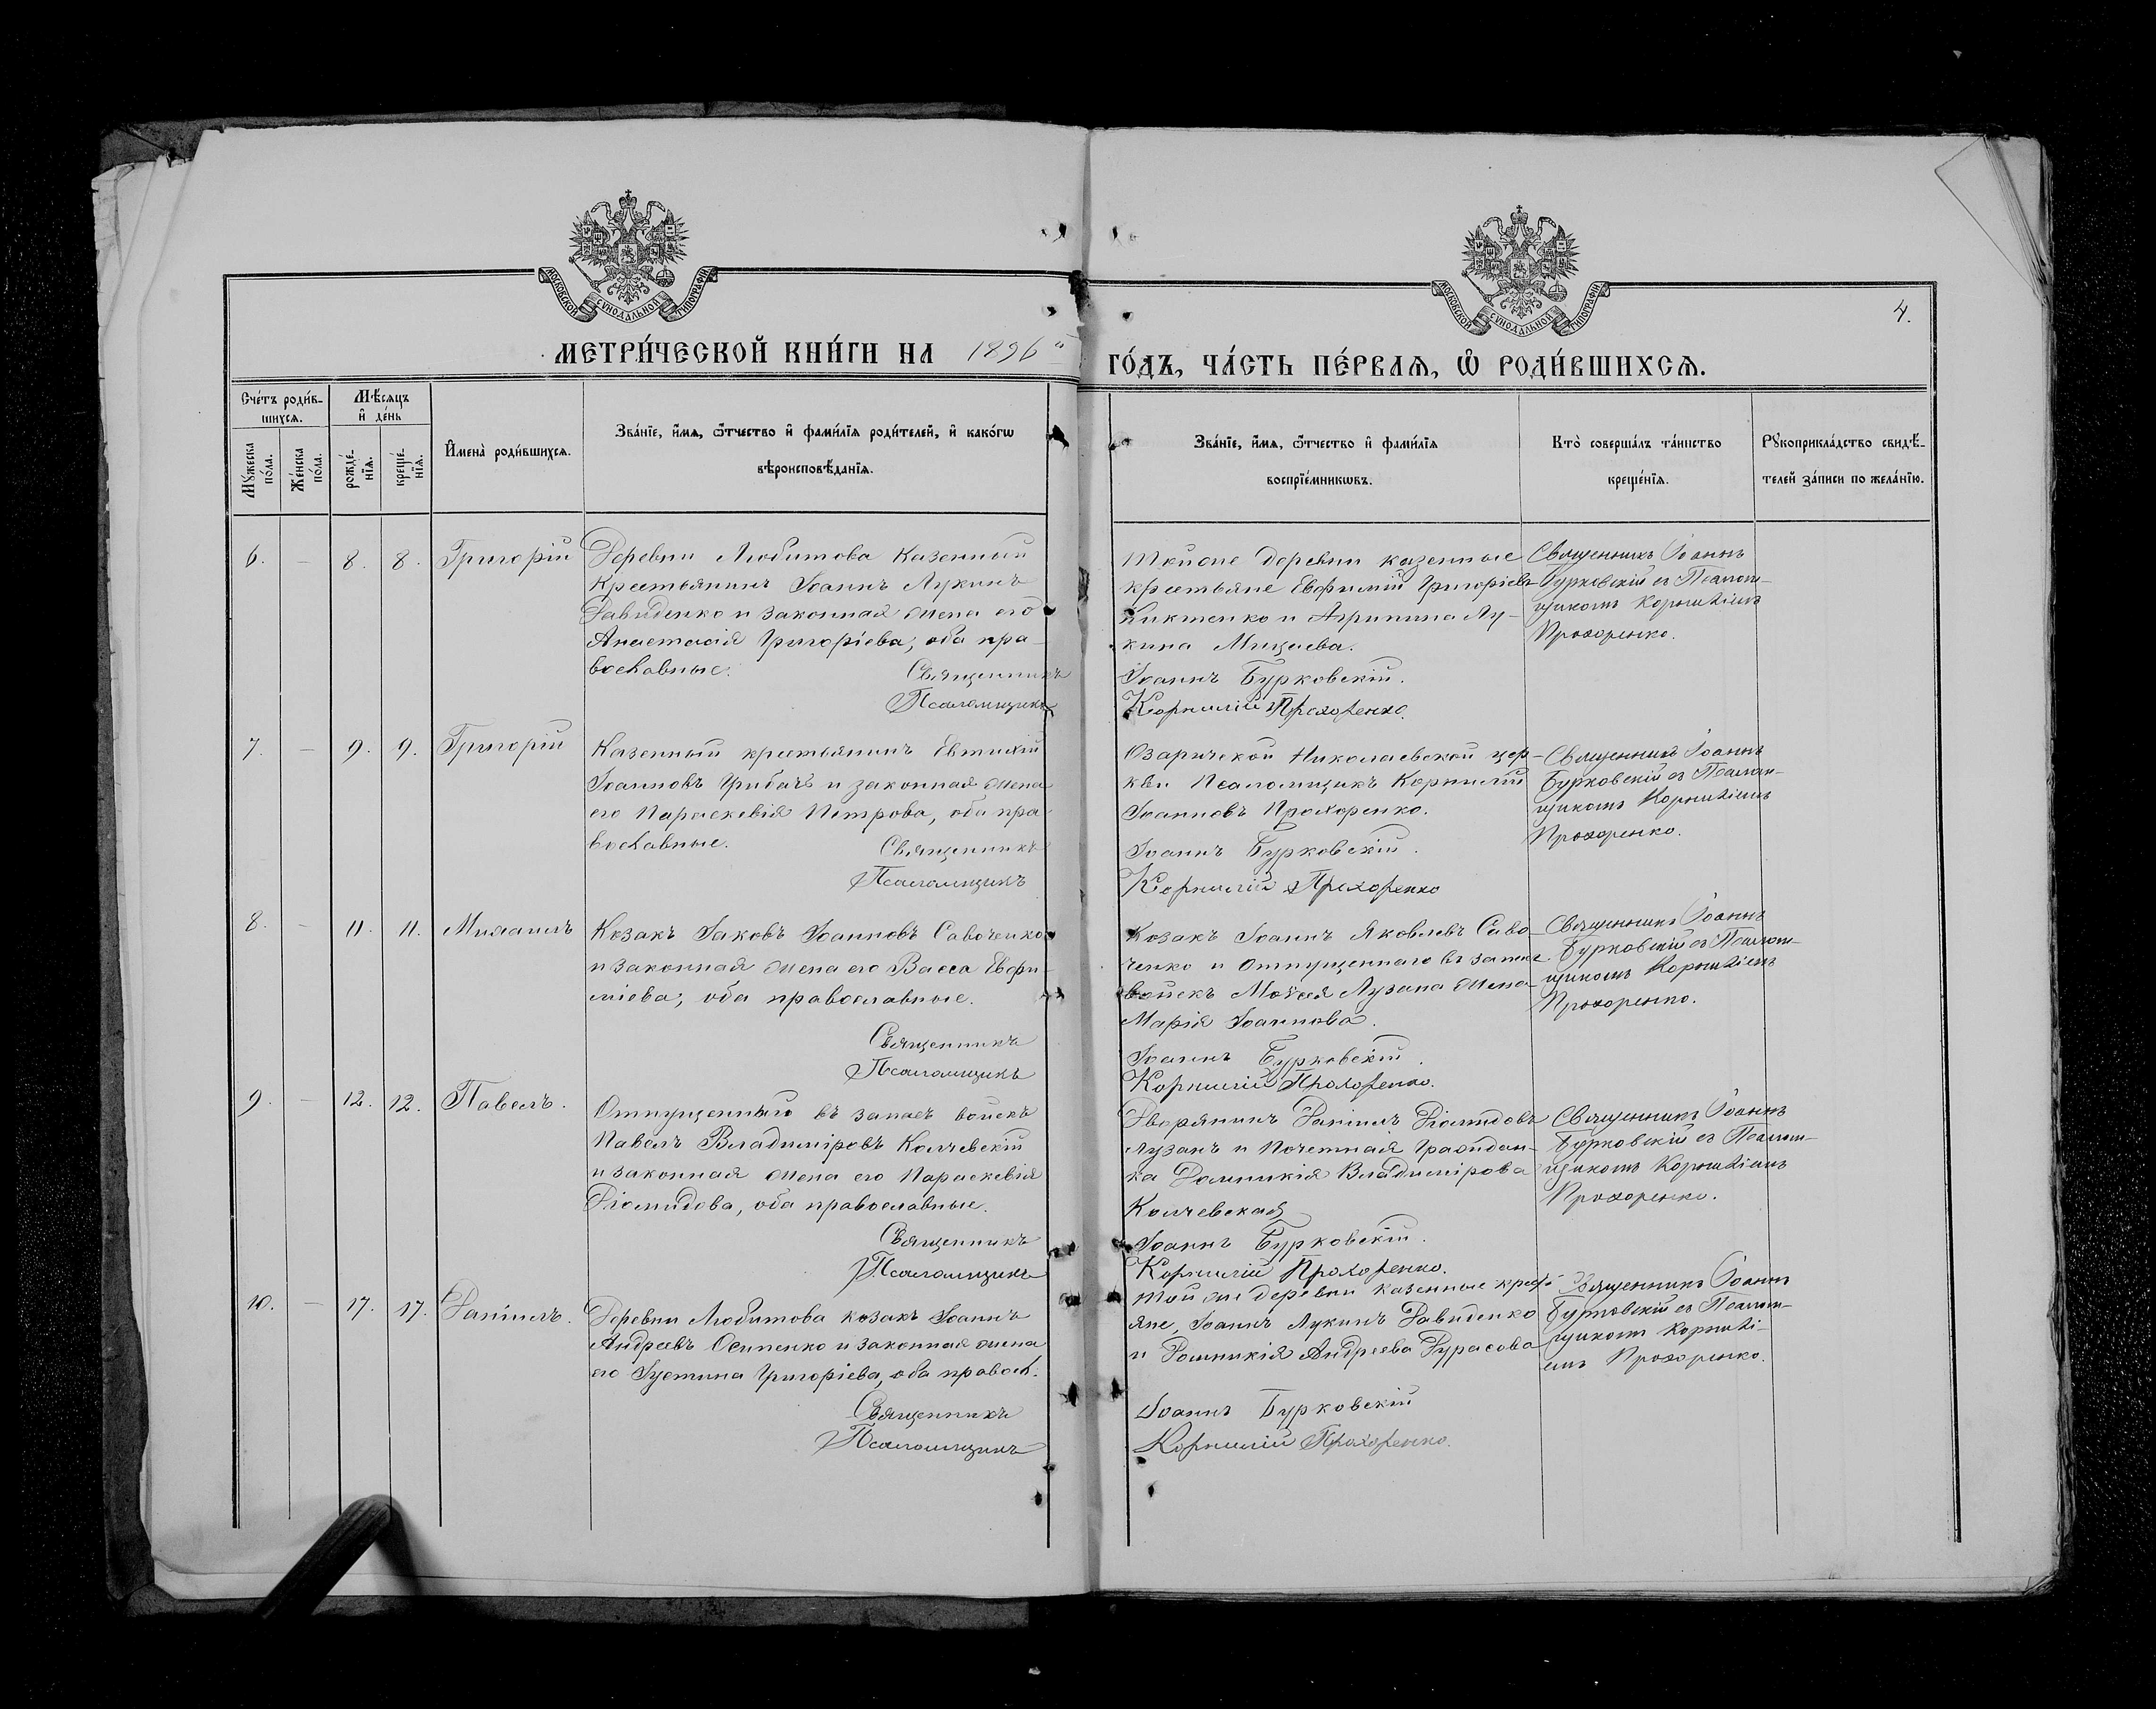 МОСКОВСКОЙ СѴНОДАЛЬНОЙ ТИПОГРАФІИ
МОСКОВСКОЙ СѴНОДАЛЬНОЙ ТИПОГРАФІИ
4.
МЕТРИ́ЧЕСКОЙ КНИ́ГИ НА 1896й ГО́ДЪ, ЧА́СТЬ ПЕ́РВАЯ, Ѡ РОДИ́ВШИХСЯ.
Сче́тъ роди́в-
шихся.
Мꙋ́жеска
по́ла.
Же́нска
по́ла.
Мѣ́сяцъ
и҆ де́нь
рожде́-
нїя.
креще́-
нїя.
И҆мена̀ роди́вшихся.
Зва́нїе, и҆́мя, ѻ҆́тчество и҆ фами́лїя роди́телей, и҆ како́гѡ
вѣроисповѣ́данїя.
Зва́нїе, и҆́мя, ѻ҆́тчество и҆ фами́лїя
воспрїе́мникѡвъ.
Кто̀ соверша́лъ та́инство
креще́нїя.
Рꙋкоприкла́дство свидѣ́-
телей за́писи по жела́нїю.
6. — 8. 8. Григорій
Деревни Любитова казенный
крестьянинъ Іоаннъ Лукинъ
Давиденко и законная жена его
Анастасія Григоріева, оба пра-
вославные.
Священникъ
Псаломщикъ
Тойже деревни казенные
крестьяне Евфимій Григоріевъ
Никтенко и Агрипина Лу-
кина Мицаева.
Іоаннъ Бурковскій.
Корнилій Прохоренко.
Священникъ Іоаннъ
Бурковскій съ Псалом-
щикомъ Корниліемъ
Прохоренко.
7. — 9. 9. Григорій
Казенный крестьянинъ Евтихій
Іоанновъ Грибачъ и законная жена
его Параскевія Петрова, оба пра
вославные.
Священникъ
Псаломщикъ
Озаричской Николаевской цер-
кви Псаломщикъ Корнилій
Іоанновъ Прохоренко.
Іоаннъ Бурковскій.
Корнилій Прохоренко
Священникъ Іоаннъ
Бурковскій съ Псалом-
щикомъ Корниліемъ
Прохоренко.
8. — 11. 11. Михаилъ
Козакъ Іаковъ Іоанновъ Савоченко
и законная жена его Васса Евфи-
міева, оба православные.
Священникъ
Псаломщикъ
Козакъ Іоаннъ Яковлевъ Саво-
ченко и Отпущеннаго въ запас
войскъ Моѵсея Лузана жена
Марія Іоаннова.
Іоаннъ Бурковскій.
Корнилій Прохоренко.
Священникъ Іоаннъ
Бурковскій съ Псалом-
щикомъ Корниліемъ
Прохоренко.
9. — 12. 12. Павелъ.
Отпущеннаго въ запасъ войскъ
Павелъ Владиміровъ Колчевскій
и законная жена его Параскевія
Діомидова, оба православные.
Священникъ
Псаломщикъ
Дворянинъ Даніилъ Діомидовъ
Лузанъ и Почетная Граждан-
ка Домникія Владимірова
Колчевская
Іоаннъ Бурковскій.
Корнилій Прохоренко.
Священникъ Іоаннъ
Бурковскій съ Псалом-
щикомъ Корниліемъ
Прохоренко.
10. — 17. 17. Даніилъ.
Деревни Любитова козакъ Іоаннъ
Андреевъ Осипенко и законная жена
его Іустина Григоріева, оба правосл.
Священникъ
Псаломщикъ
Той же деревни казенные крест-
яне, Іоаннъ Лукинъ Давиденко
и Домникія Андреева Дурасова
Іоаннъ Бурковскій
Корнилій Прохоренко.
Священникъ Іоаннъ
Бурковскій съ Псалом-
щикомъ Корнилі-
емъ Прохоренко.